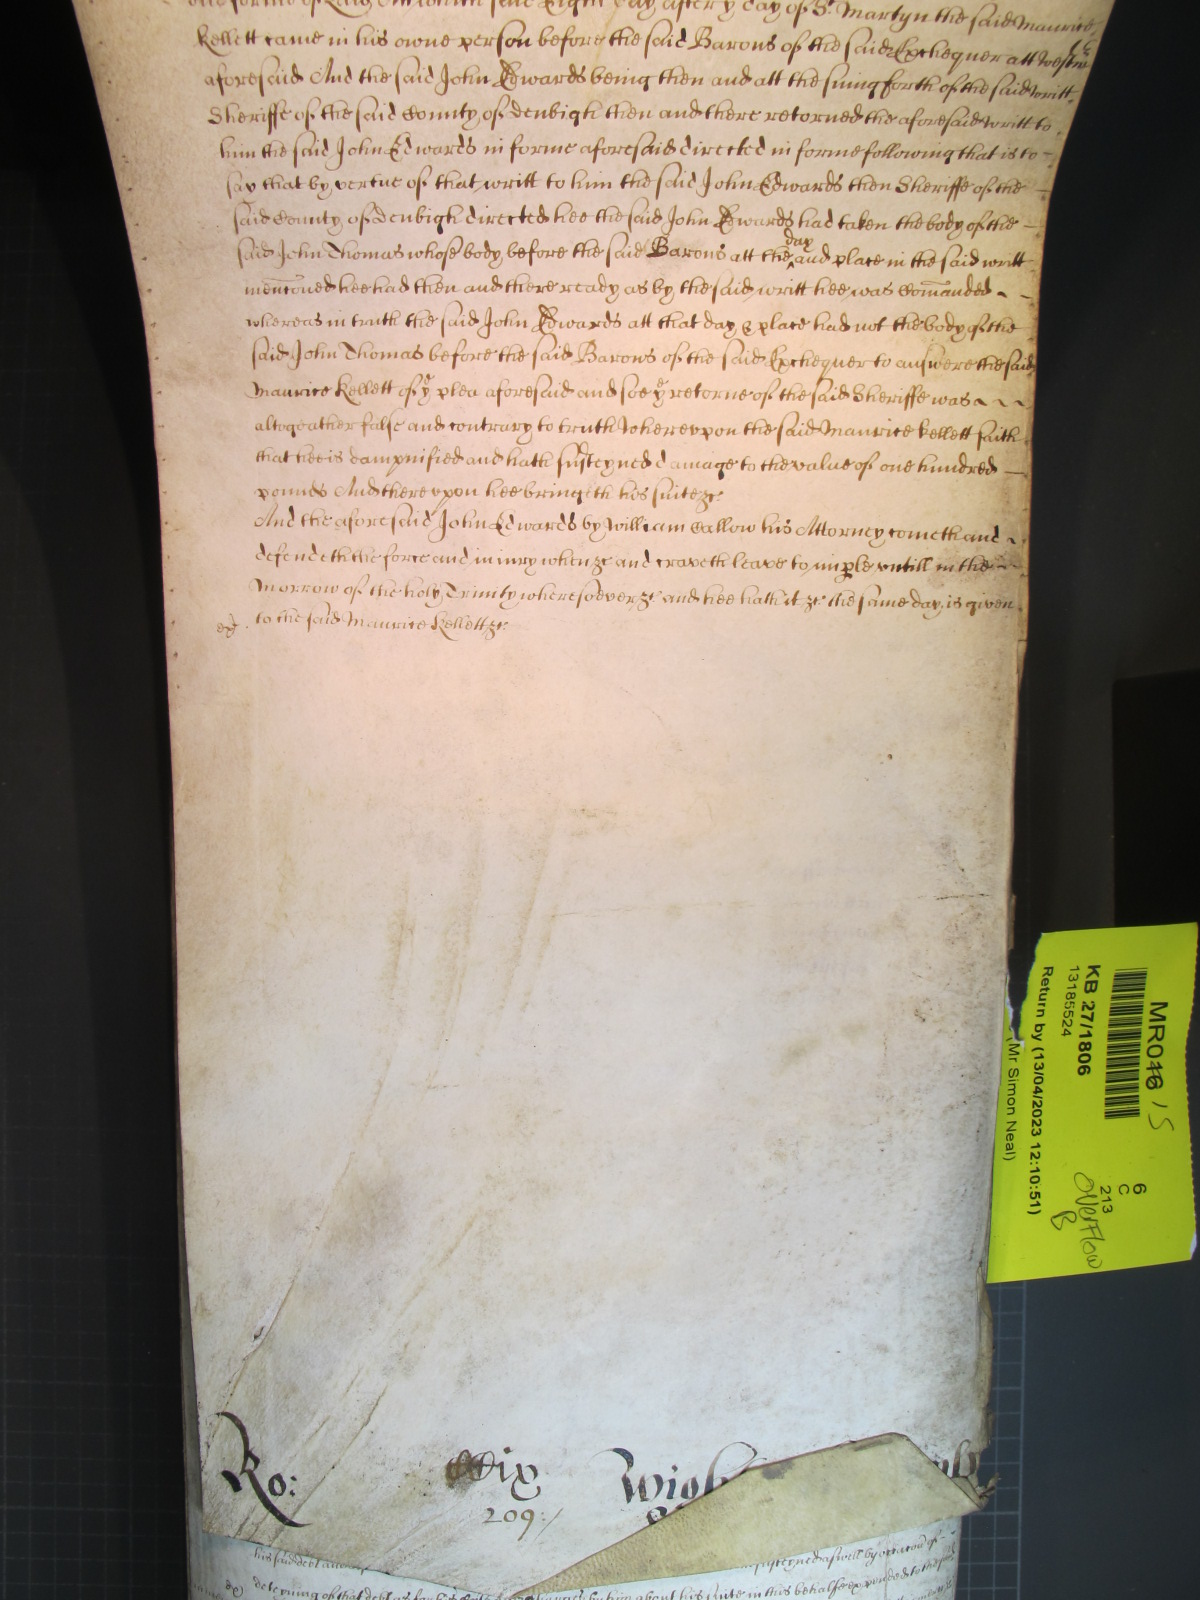 said Eigth day after yͤ day of St. Martyn the said Maurice
Kellett came in his owne person before the said Barons of the said Exchequer att Westmr
aforesaid And the said John Edwards being then and att the suing forth of the said writt
Sheriffe of the said County of Denbigh then and there retorned the aforesaid writt to
him the said John Edwards in forme aforesaid directed in forme following that is to
say that by vertue of that writt to him the said John Edwards then Sheriffe of the
said County of Denbigh directed hee the said John Edwards had taken the body of the
said John Thomas whose body before the said Barons att the ^day and place in the said writt
menc̄oned hee had then and there ready as by the said writt hee was Com̄anded
whereas in truth the said John Edwards att that day & place had not the body of the
said John Thomas before the said Barons of the said Exchequer to answere the said
Maurice Kellett of yͤ plea aforesaid and soe yͤ retorne of the said Sheriffe was
altogeather false and contrary to truth Wherevpon the said Maurice Kellett saith
that hee is dampnified and hath susteyned damage to the value of one hundred
pounds And therevpon hee bringeth his suite &c
And the aforesaid John Edwards by William Callow his Attorney cometh and
defendeth the force and iniury when &c and craveth leave to imple vntill in the
Morrow of the holy Trinity wheresoever &c and hee hath it &c the same day is given
to the said Maurice Kellett &c
Ro: CCix
209:/
his said debt
susteyned aswell by occacon of
deteyning of that debt as for his about his suite in this behalfe expended to the
MR046 15
KB 27/1806
13185524
Return by (13/04/2023 12:10:51)
(Mr Simon Neal)
6
C
213
overflow
B